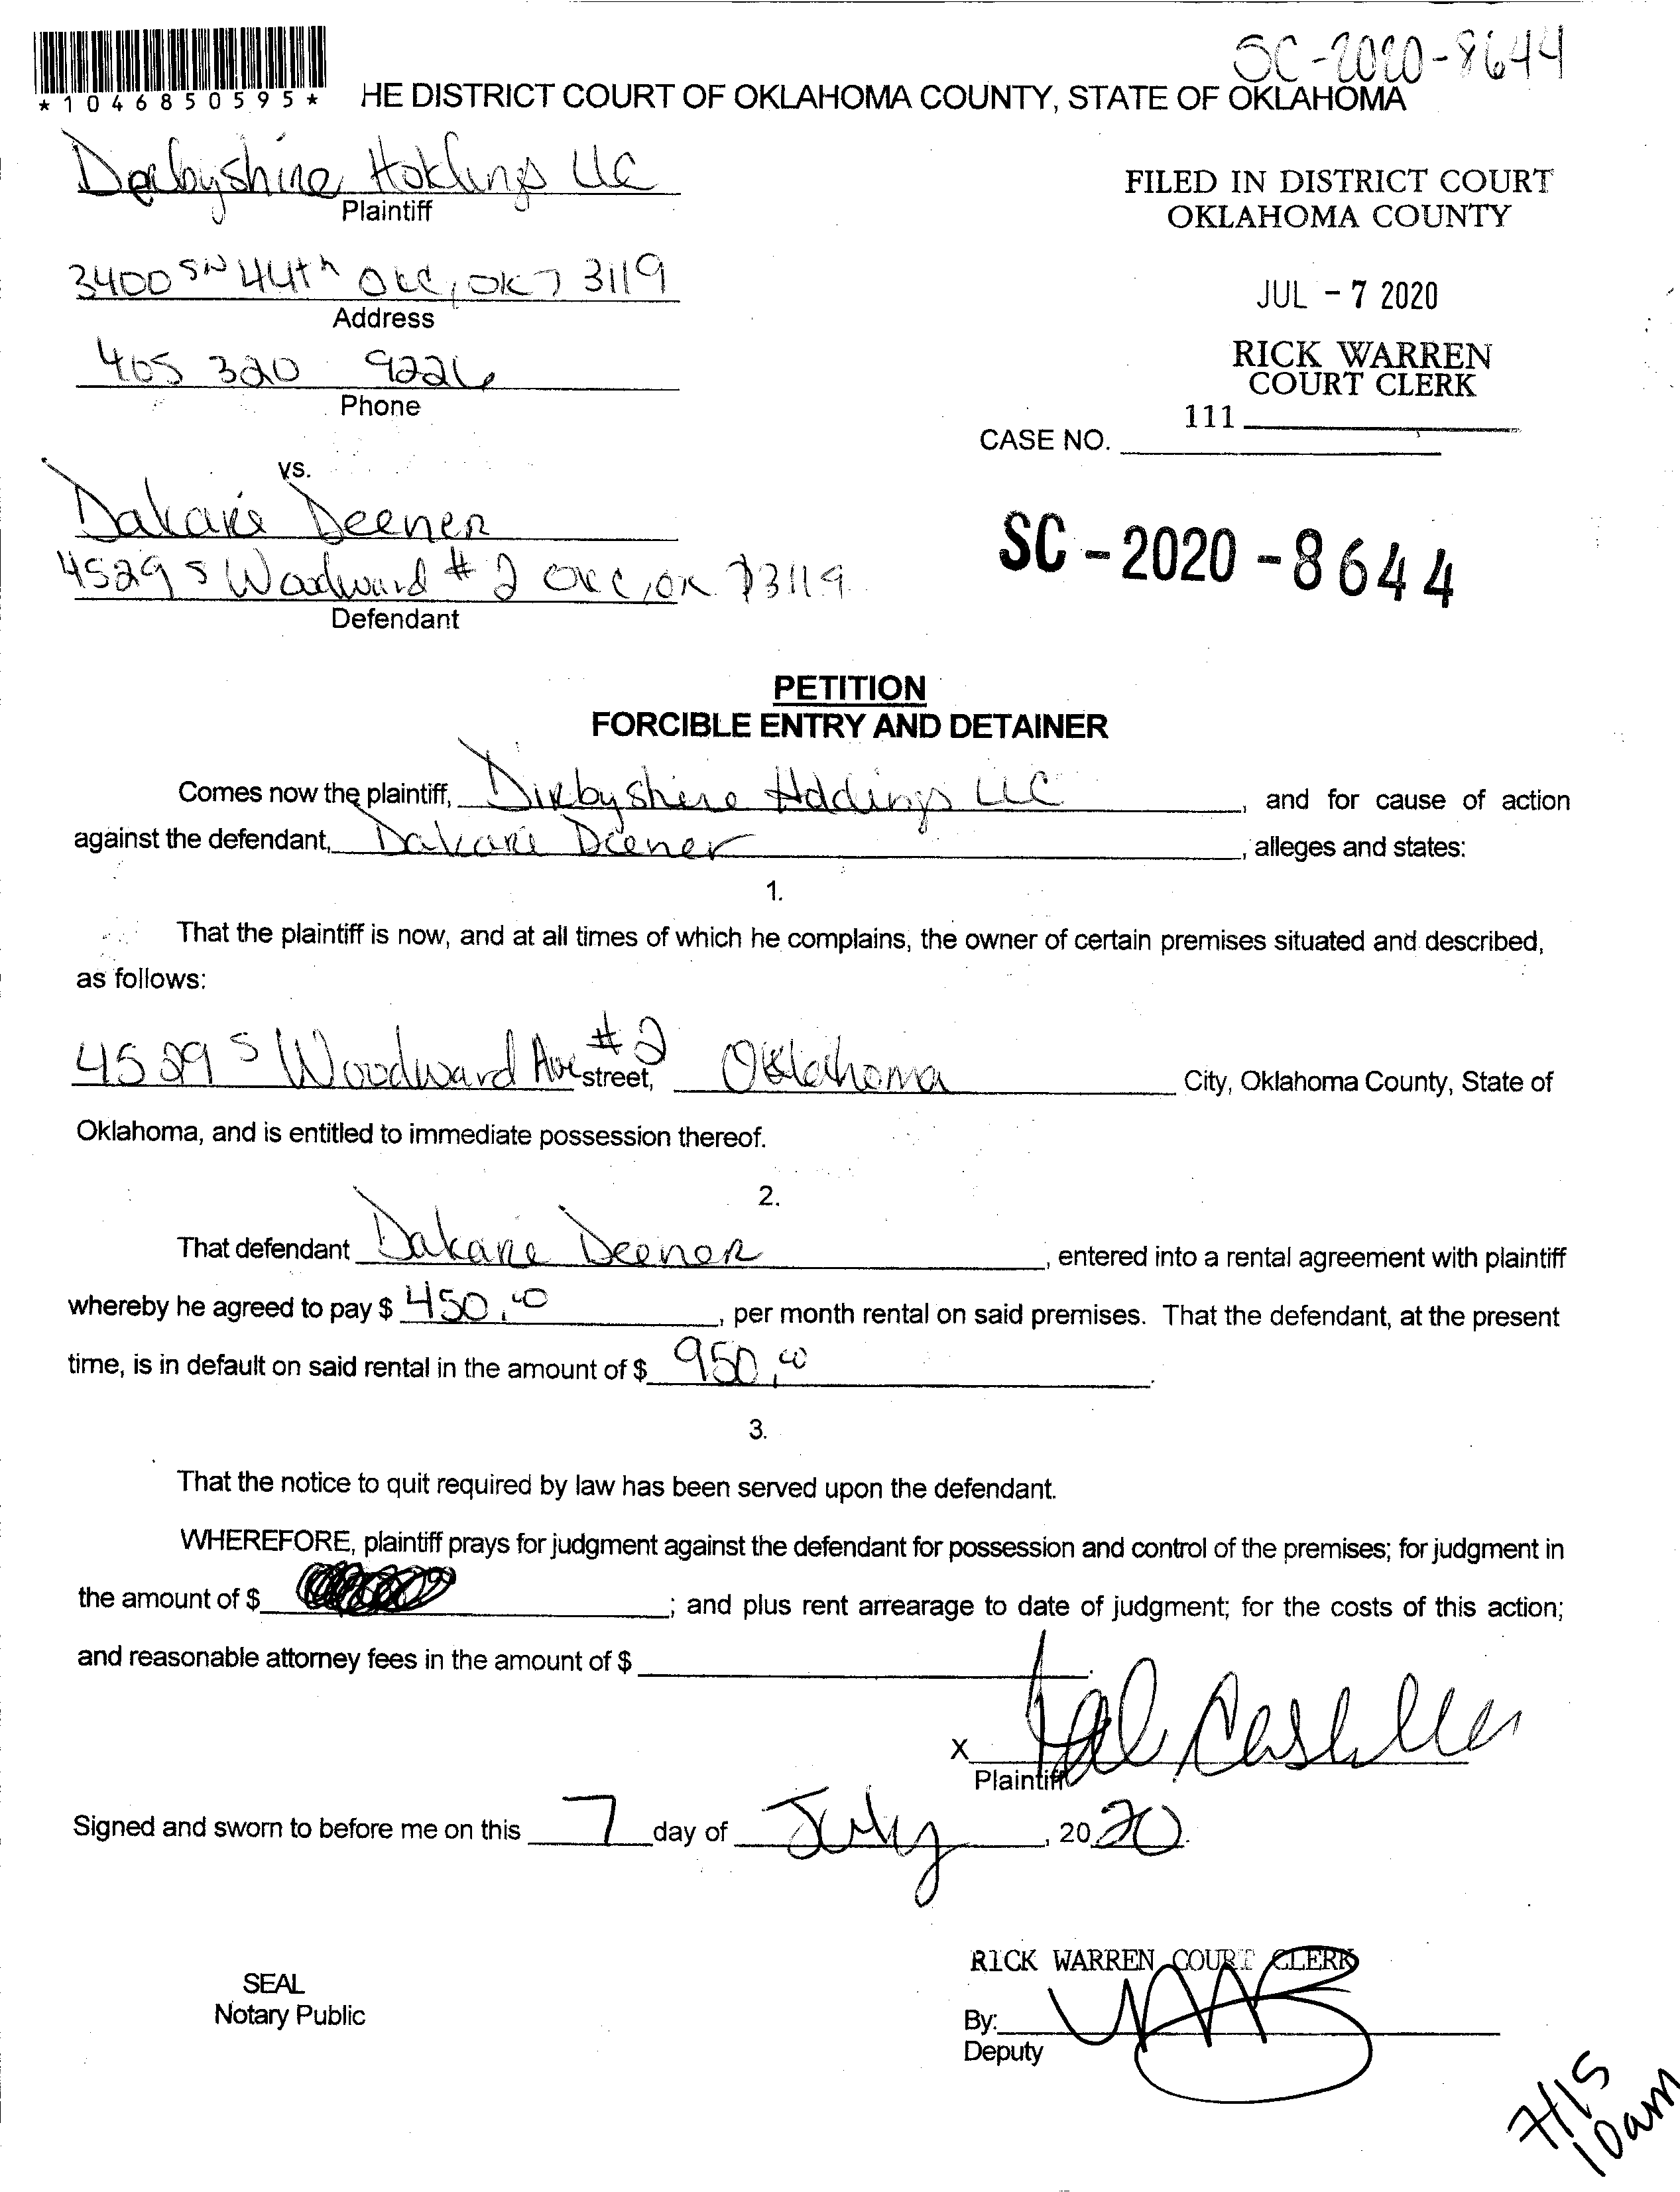 SC-2020-8644
*1046850595*
HE DISTRICT COURT OF OKLAHOMA COUNTY, STATE OF OKLAHOMA
Derbyshire Holdings LLC
Plaintiff
FILED IN DISTRICT COURT
OKLAHOMA COUNTY
3400 SW 44th OKC, OK 73119
Address
JUL - 7 2020
405 320 9226
Phone
RICK WARREN
COURT CLERK
111
CASE NO.
vs.
Dakarie Deener
4529 S Woodward #2 OKC, OK 73119
Defendant
SC - 2020 - 8644
PETITION
FORCIBLE ENTRY AND DETAINER
Comes now the plaintiff, Dirbyshere Holdings LLC, and for cause of action
against the defendant, Dakarie Deener, alleges and states:
1.
That the plaintiff is now, and at all times of which he complains, the owner of certain premises situated and described,
as follows:
4529 S Woodward Ave #2 street, Oklahoma City, Oklahoma County, State of
Oklahoma, and is entitled to immediate possession thereof.
2.
That defendant Dakarie Deener, entered into a rental agreement with plaintiff
whereby he agreed to pay $ 450.00, per month rental on said premises. That the defendant, at the present
time, is in default on said rental in the amount of $ 950.00.
3.
That the notice to quit required by law has been served upon the defendant.
WHEREFORE, plaintiff prays for judgment against the defendant for possession and control of the premises; for judgment in
the amount of $ ; and plus rent arrearage to date of judgment; for the costs of this action;
and reasonable attorney fees in the amount of $ .
X
Plaintiff
Signed and sworn to before me on this 7 day of July, 2020.
SEAL
Notary Public
RICK WARREN COURT CLERK
By:
Deputy
7/15
10am